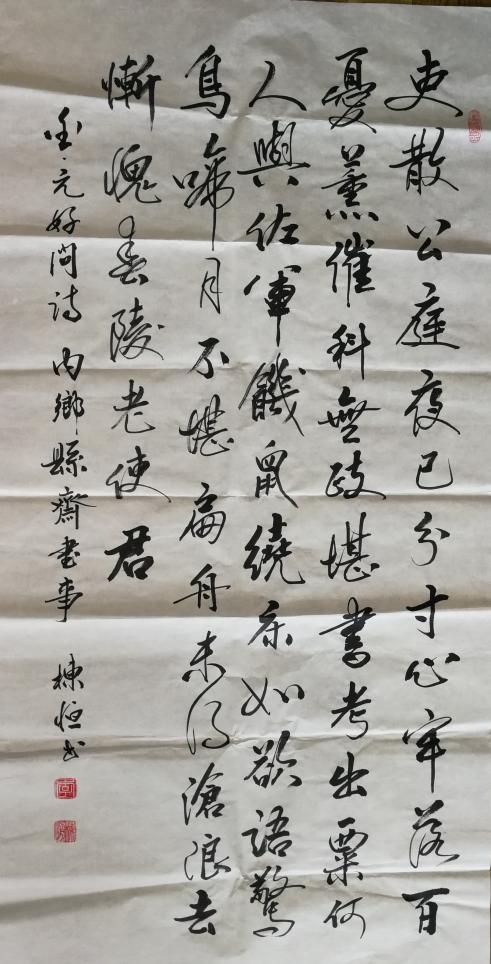 吏散公庭夜已分寸心牢落百
憂薰催科無政堪書考出粟何
人與佐軍饑鼠繞床如欲語驚
鳥啼月不堪扁舟未得滄浪去
慚愧舂陵老使君
金·元好問詩 内鄉縣齋書事 棟恒书